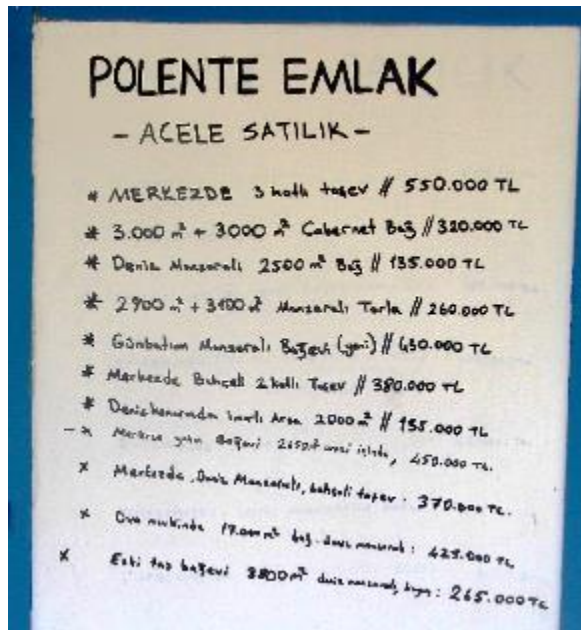 POLENTE EMLAK
- ACELE SATILIK -
* MERKEZDE 3 katlı taşev // 550.000 TL
* 3.000 m² + 3000 m² Cabernet Bağ // 320.000 TL
* Deniz Manzaralı 2500 m² Bağ // 135.000 TL
* 2900 m² + 3100 m² Manzaralı Tarla // 260.000 TL
* Günbatımı Manzaralı Bağevi (yeni) // 430.000 TL
* Merkezde Bahçeli 2 katlı Taşev // 380.000 TL
* Deniz kenarında imarlı Arsa 2000 m² // 135.000 TL
- x Merkeze yakın Bağevi 2650 m² arazi içinde, 450.000 TL.
x Merkezde, Deniz Manzaralı, bahçeli taşev : 370.000 TL.
x Ova mevkiinde 17.000 m² bağ. deniz manzaralı : 425.000 TL
x Eski taş bağevi 8800 m² deniz manzaralı, : 265.000 TL